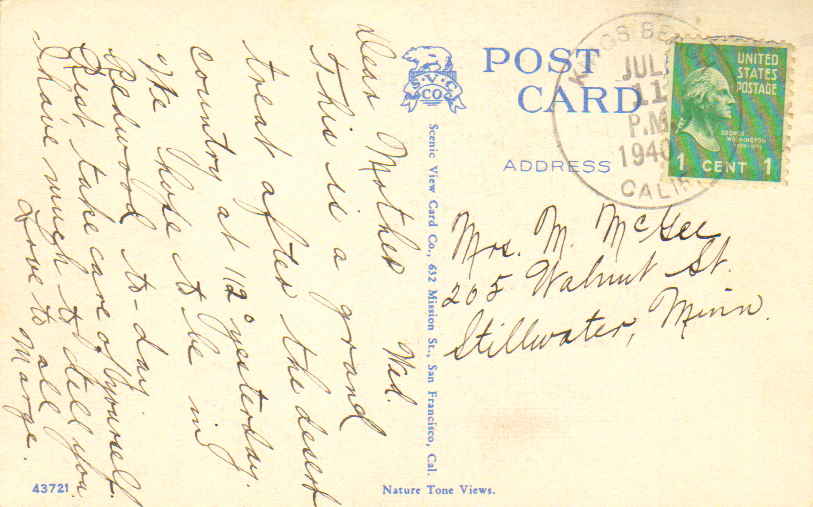 Wed.
Dear Mother
This is a grand
treat after the desert
country at 112° yesterday.
We hope to be in
Redwood to-day.
Rest take care of yourself.
I have much to tell you
Love to all
Marge.
V.C.
CO
POST
CARD
ADDRESS
KINGS BEACH
JUL
11
P.M.
1940
CALIF.
UNITED
STATES
POSTAGE
GEORGE
WASHINGTON
1 CENT 1
Mrs. M. McGee
205 Walnut St.
Stillwater, Minn.
Scenic View Card Co., 632 Mission St., San Francisco, Cal.
43721
Nature Tone Views.